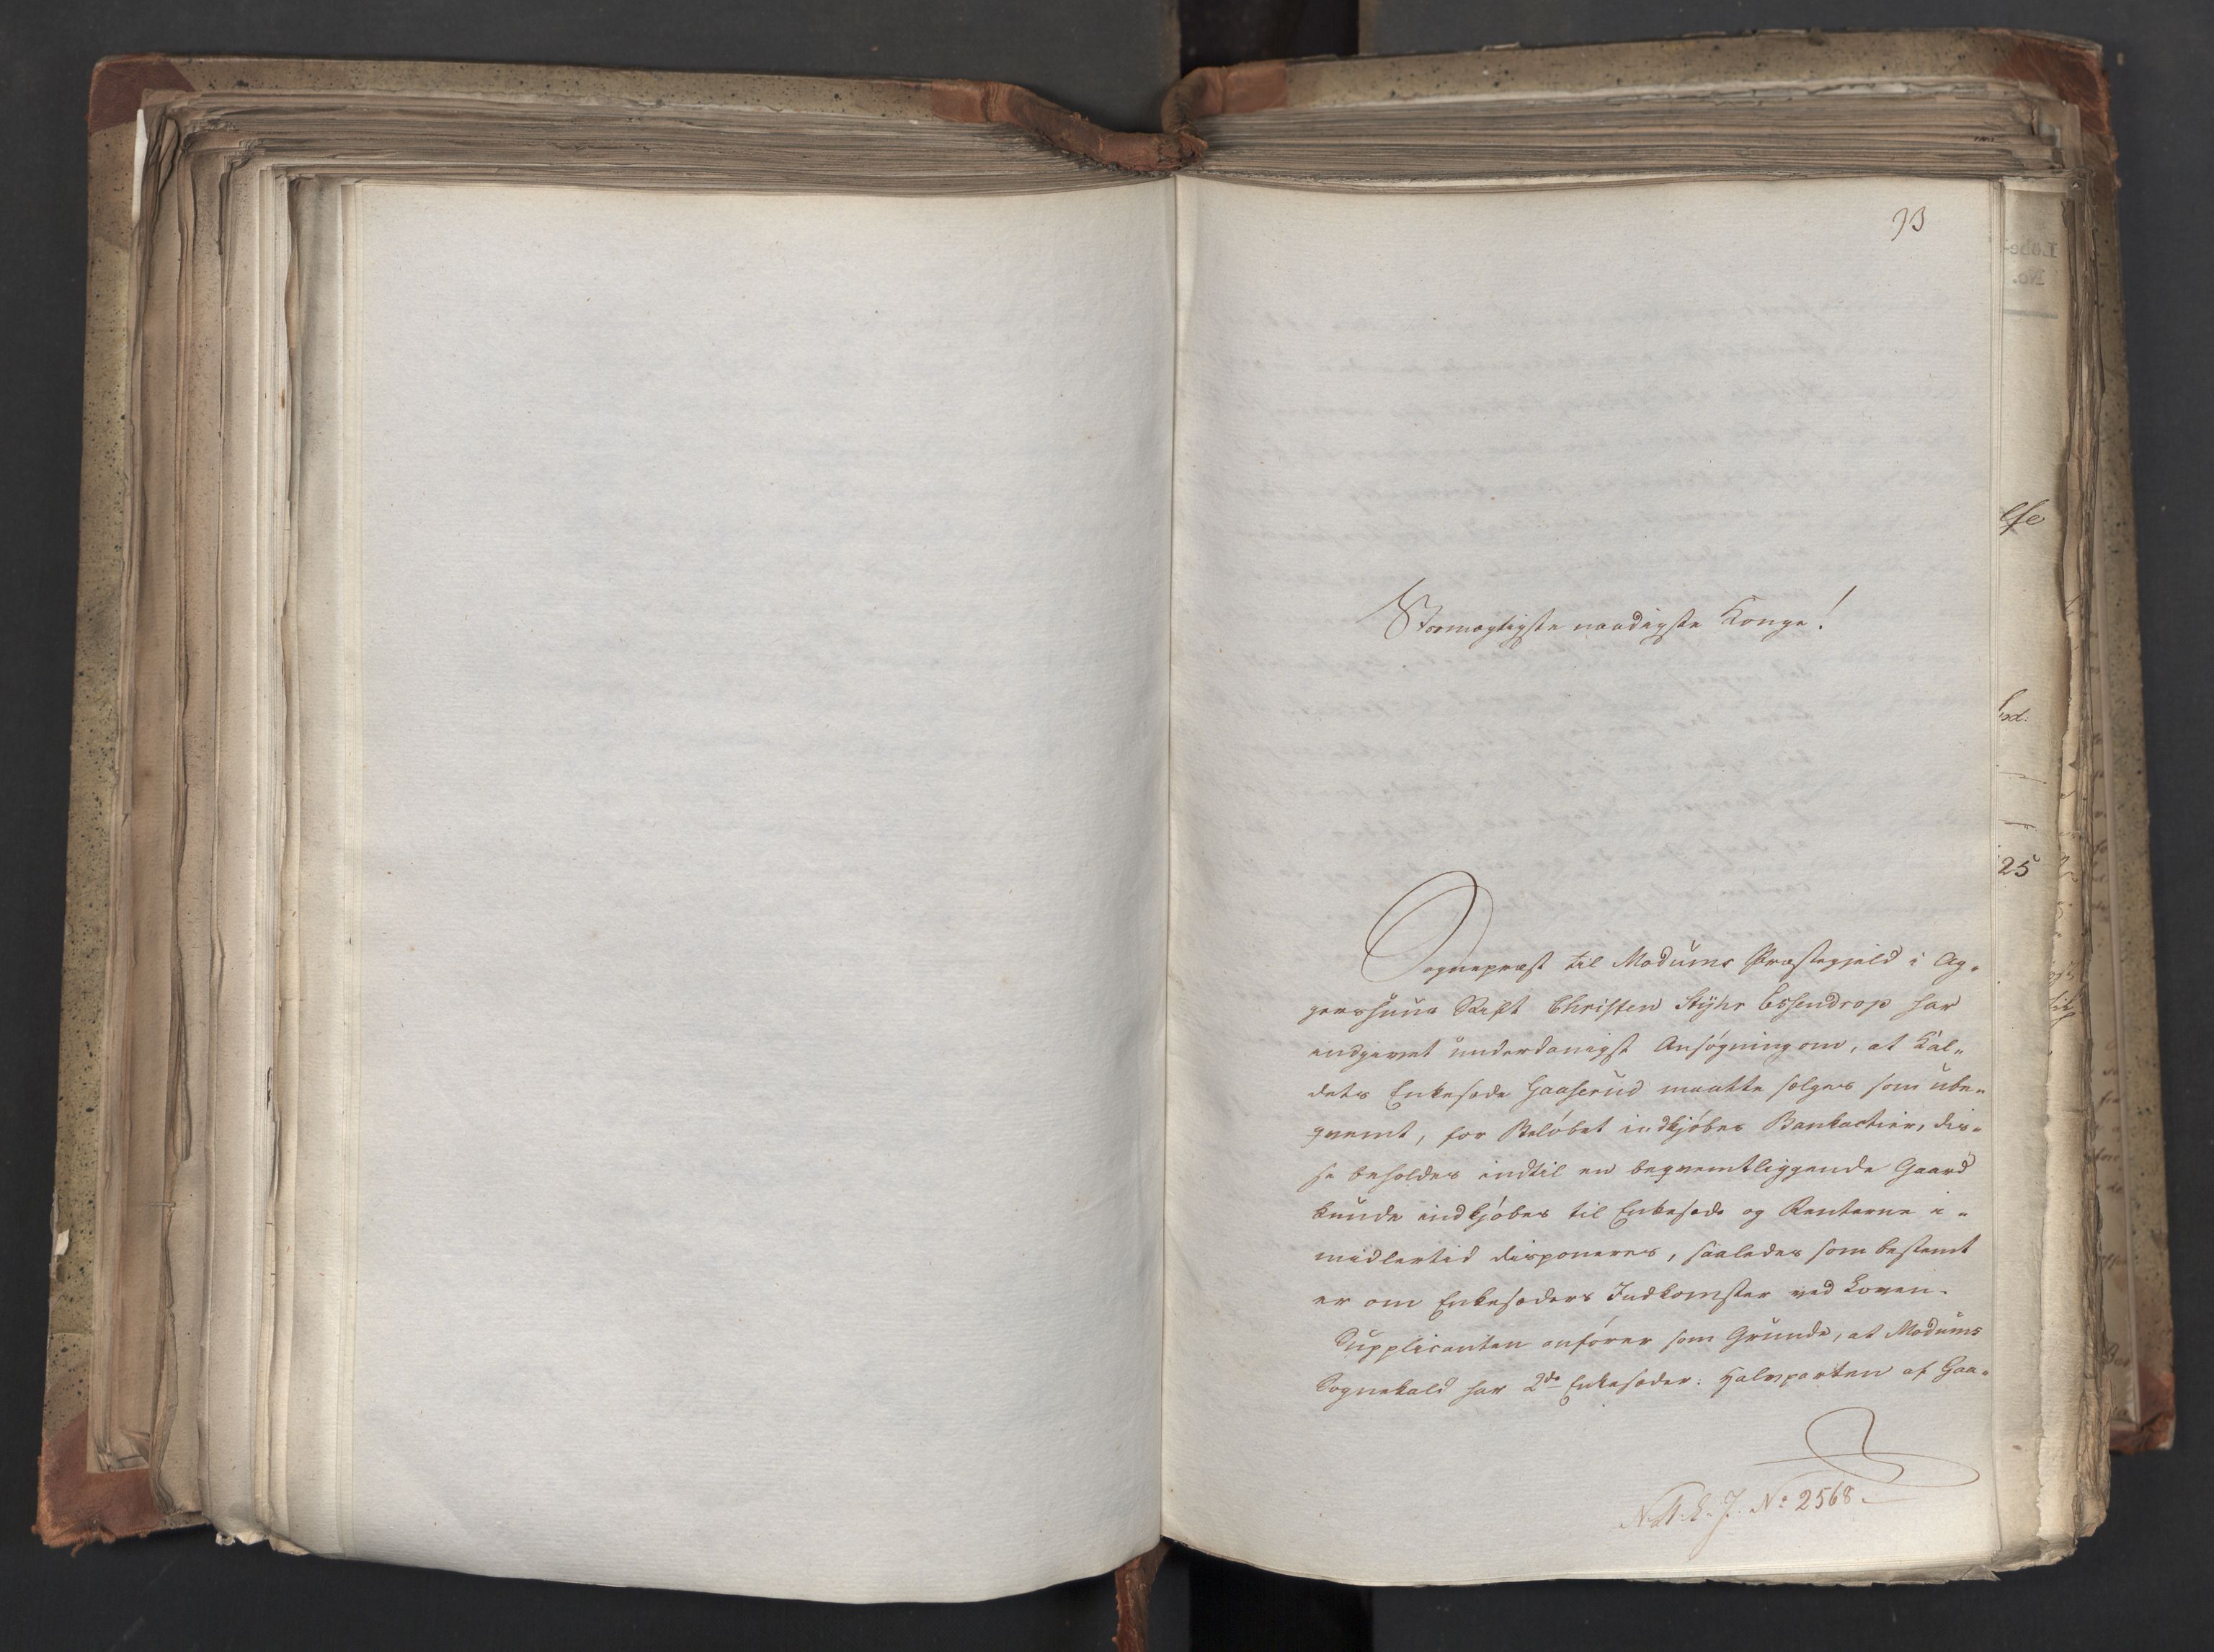 93
Stormægtigste naadigste Konge!
Sognepræst til Modums Præstegjeld i Ag„
gershuus Stift Christen Stÿhr Essendrop har
indgivet underdanigst Ansøgning om, at Kal„
dets Enkesæde Gaaserud maatte sælges som ube„
qvemt, for Beløbet indkjøbes Bankactier, dis„
se beholdes indtil en beqvemtliggende Gaard
kunde indkjøbes til Enkesæde og Renterne i„
midlertid disponeres, saaledes som bestemt
er om Enkesæders Indkomster ved Loven.
Supplicanten anfører som Grunde, at Modums
Sognekald har 2de Enkesæder: Halvparten af Gaa„
No 2568.
Löbe-
No.
25